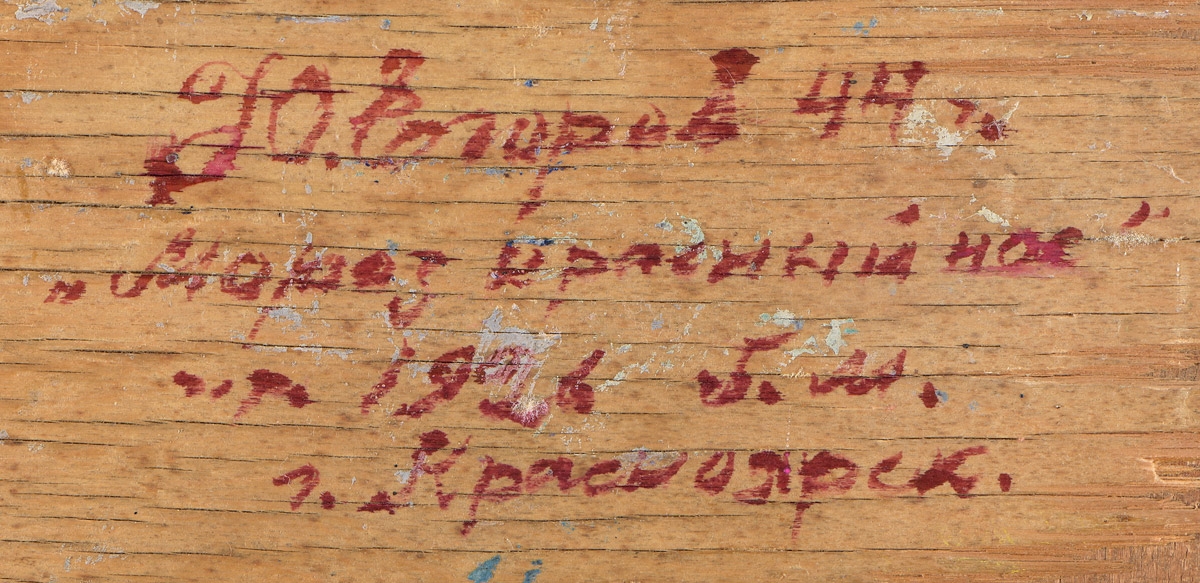 Ю. Второв 44 г.
„Мороз красный нос"
г. 1996 б. м.
г. Красноярск.